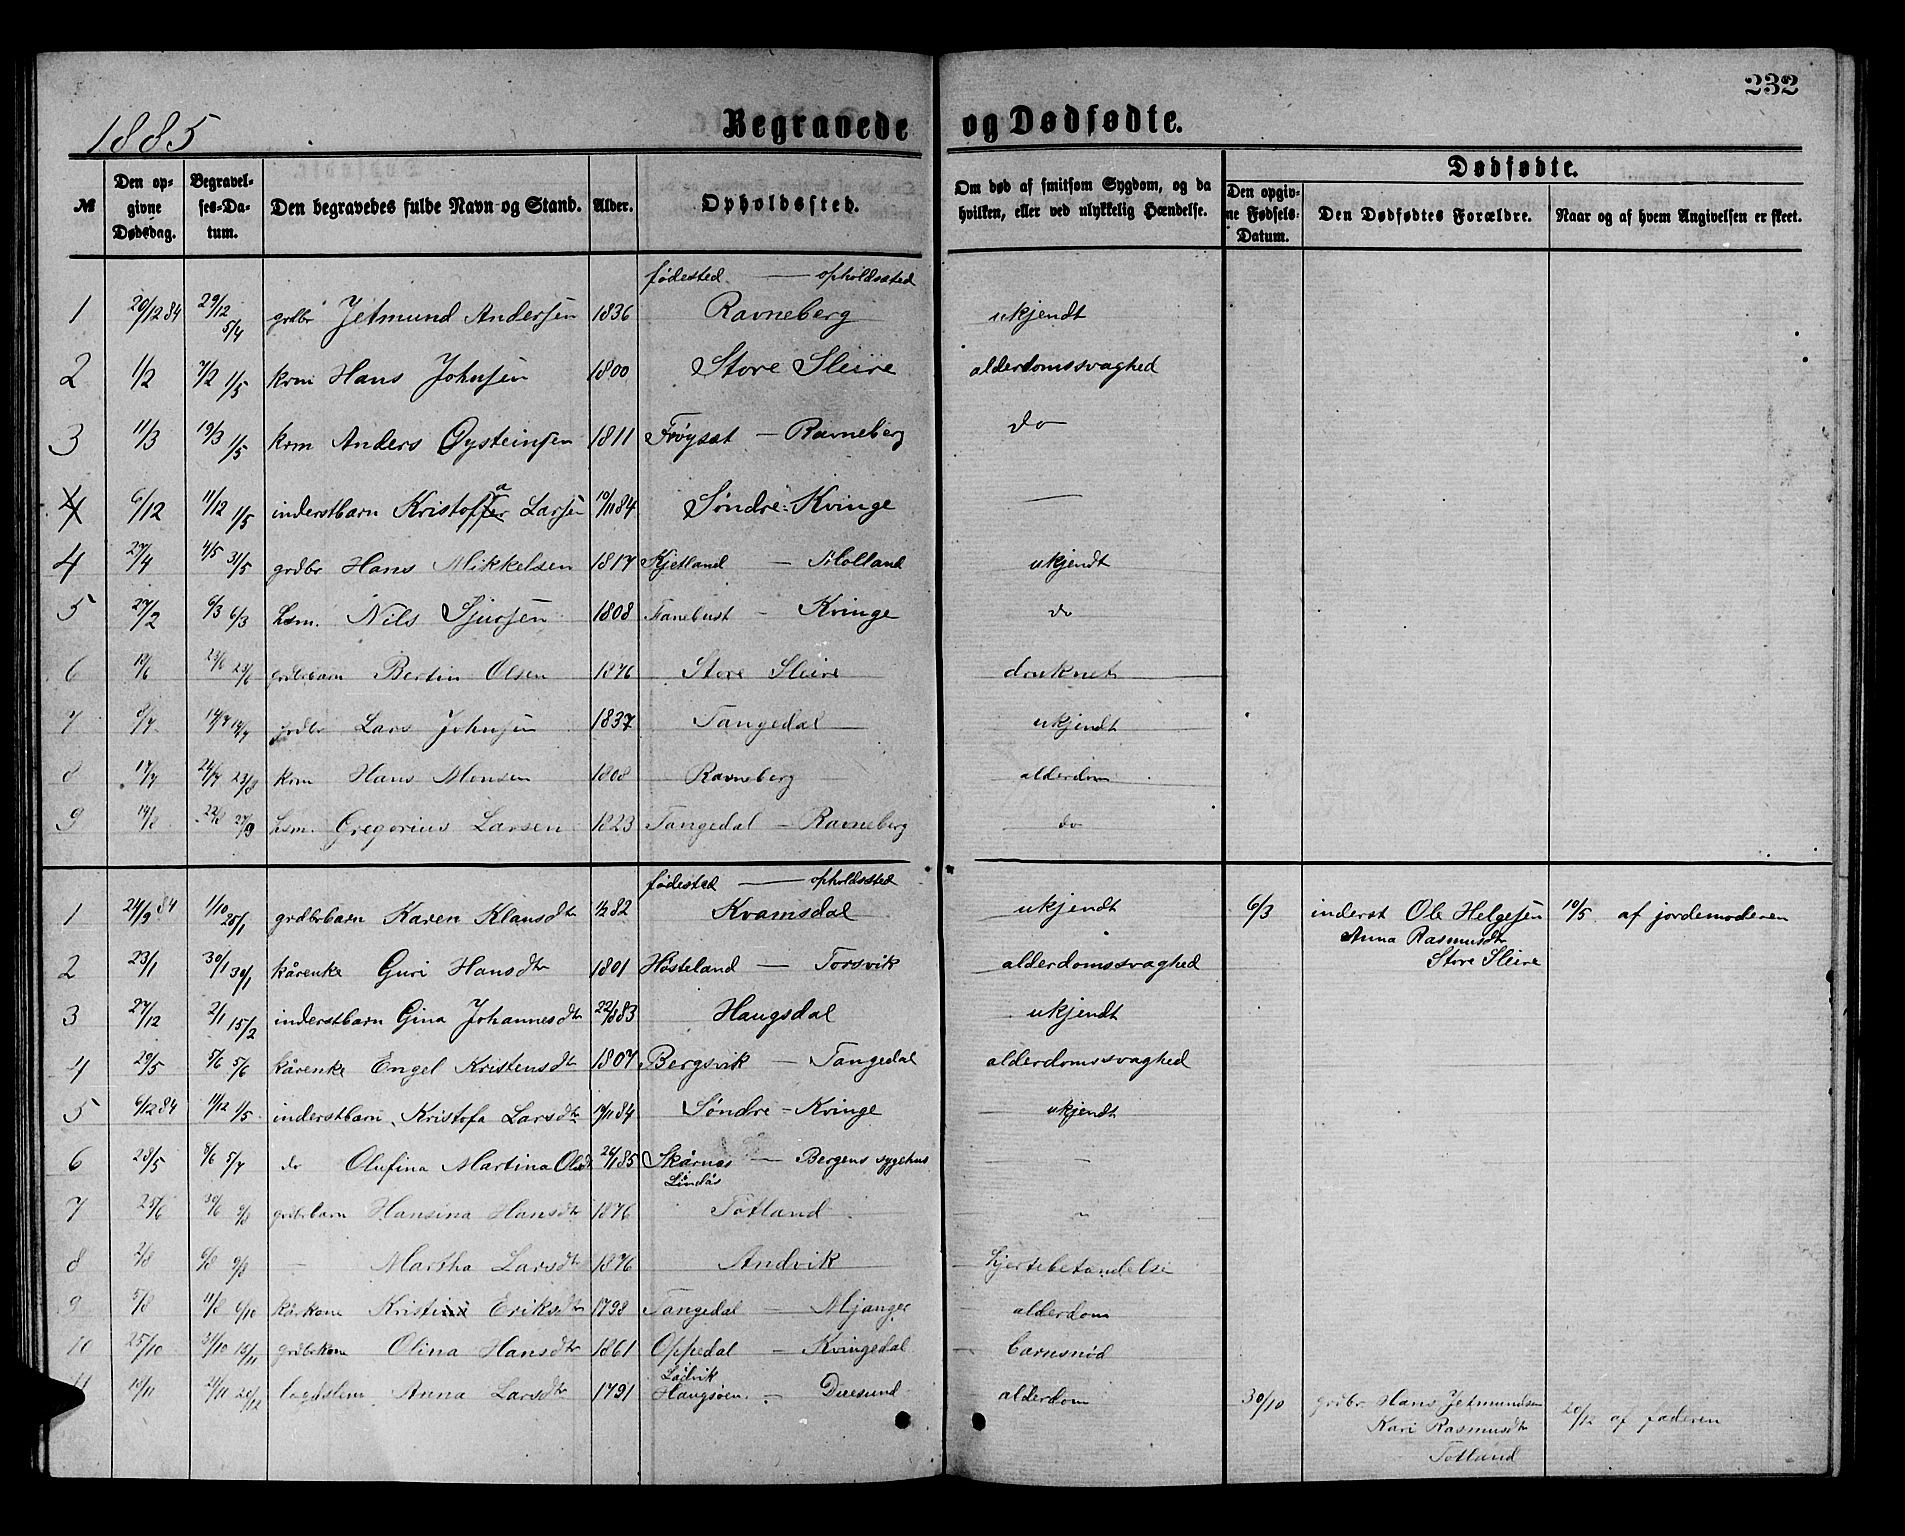 232
1885
Begravede og Dødfødte.
№ Den opgivne Dødsdag. Begravelses-Datum. Den begravedes fulde Navn og Stand. Alder. Opholdssted. Om død af smitsom Sygdom, og da hvilken, eller ved ulykkelig Hændelse. Dødfødte. Den opgivne Fødsels-Datum. Den Dødfødtes Forældre. Naar og af hvem Angivelsen er skeet.
fødested — opholdssted
1 20/12 84 29/12 5/4 grdbr Jetmund Andersen 1836 Ravneberg ukjendt
2 1/2 7/2 1/5 krm Hans Johnsen 1800 Store Sleire alderdomssvaghed
3 11/3 19/3 1/5 krm Anders Øysteinsen 1811 Frøyset — Ravneberg do
4 6/12 11/12 1/5 inderstbarn Kristoffer a Larsen 10/11 84 Søndre Kvinge —
4 27/4 4/5 31/5 grdbr Hans Mikkelsen 1817 Kjetland — Molland ukjendt
5 27/2 6/3 6/3 hsm. Nils Sjursen 1808 Fanebust — Kvinge do
6 19/6 23/6 23/6 grdbrbarn Bertin Olsen 1876 Store Sleire druknet
7 8/7 14/7 14/7 grdbr Lars Johnsen 1837 Tangedal ukjendt
8 17/7 24/7 23/8 krm Hans Monsen 1808 Ravneberg alderdom
9 14/8 22/8 27/9 hsm. Gregorius Larsen 1823 Tangedal — Ravneberg do
fødested — opholdssted
1 24/9 84 1/10 25/1 grdbrbarn Karen Klausdtr 1/2 82 Kvamsdal ukjendt 6/3 inderst Ole Helgesen 10/5 af jordemoderen
Anna Rasmusdtr
Store Sleire
2 23/1 30/1 30/1 kårenke Guri Hansdtr 1801 Høsteland — Torsvik alderdomssvaghed
3 27/12 2/1 15/2 inderstbarn Gina Johannesdtr 22/8 83 Haugsdal ukjendt
4 29/5 5/6 5/6 kårenke Engel Kristensdtr 1807 Bergsvik — Tangedal alderdomssvaghed
5 6/12 84 11/12 1/5 inderstbarn Kristofa Larsdtr 11/11 84 Søndre - Kvinge ukjendt
6 28/5 8/6 5/7 do Olufina Martina Olsdt 26/1 85 Skårnes — Bergens sygehus —
Lindås
7 25/6 30/6 9/8 grdbrbarn Hansina Hansdtr 1876 Totland "
8 2/8 6/8 9/8 — Martha Larsdtr 1876 Andvik hjertebetændelse
9 5/8 11/8 6/10 kårkone Kristini Eriksdtr 1798 Tangedal — Mjanger alderdom
10 25/10 31/10 15/11 grdbrkone Olina Hansdtr 1861 Oppedal — Kvingedal barnsnød
Ladvik
11 14/11 21/11 26/12 lægdslem Anna Larsdtr 1791 Haugsøen — Duesund alderdom 30/10 grdbr Hans Jetmundsen 20/12 af faderen
Kari Rasmusdtr
Totland